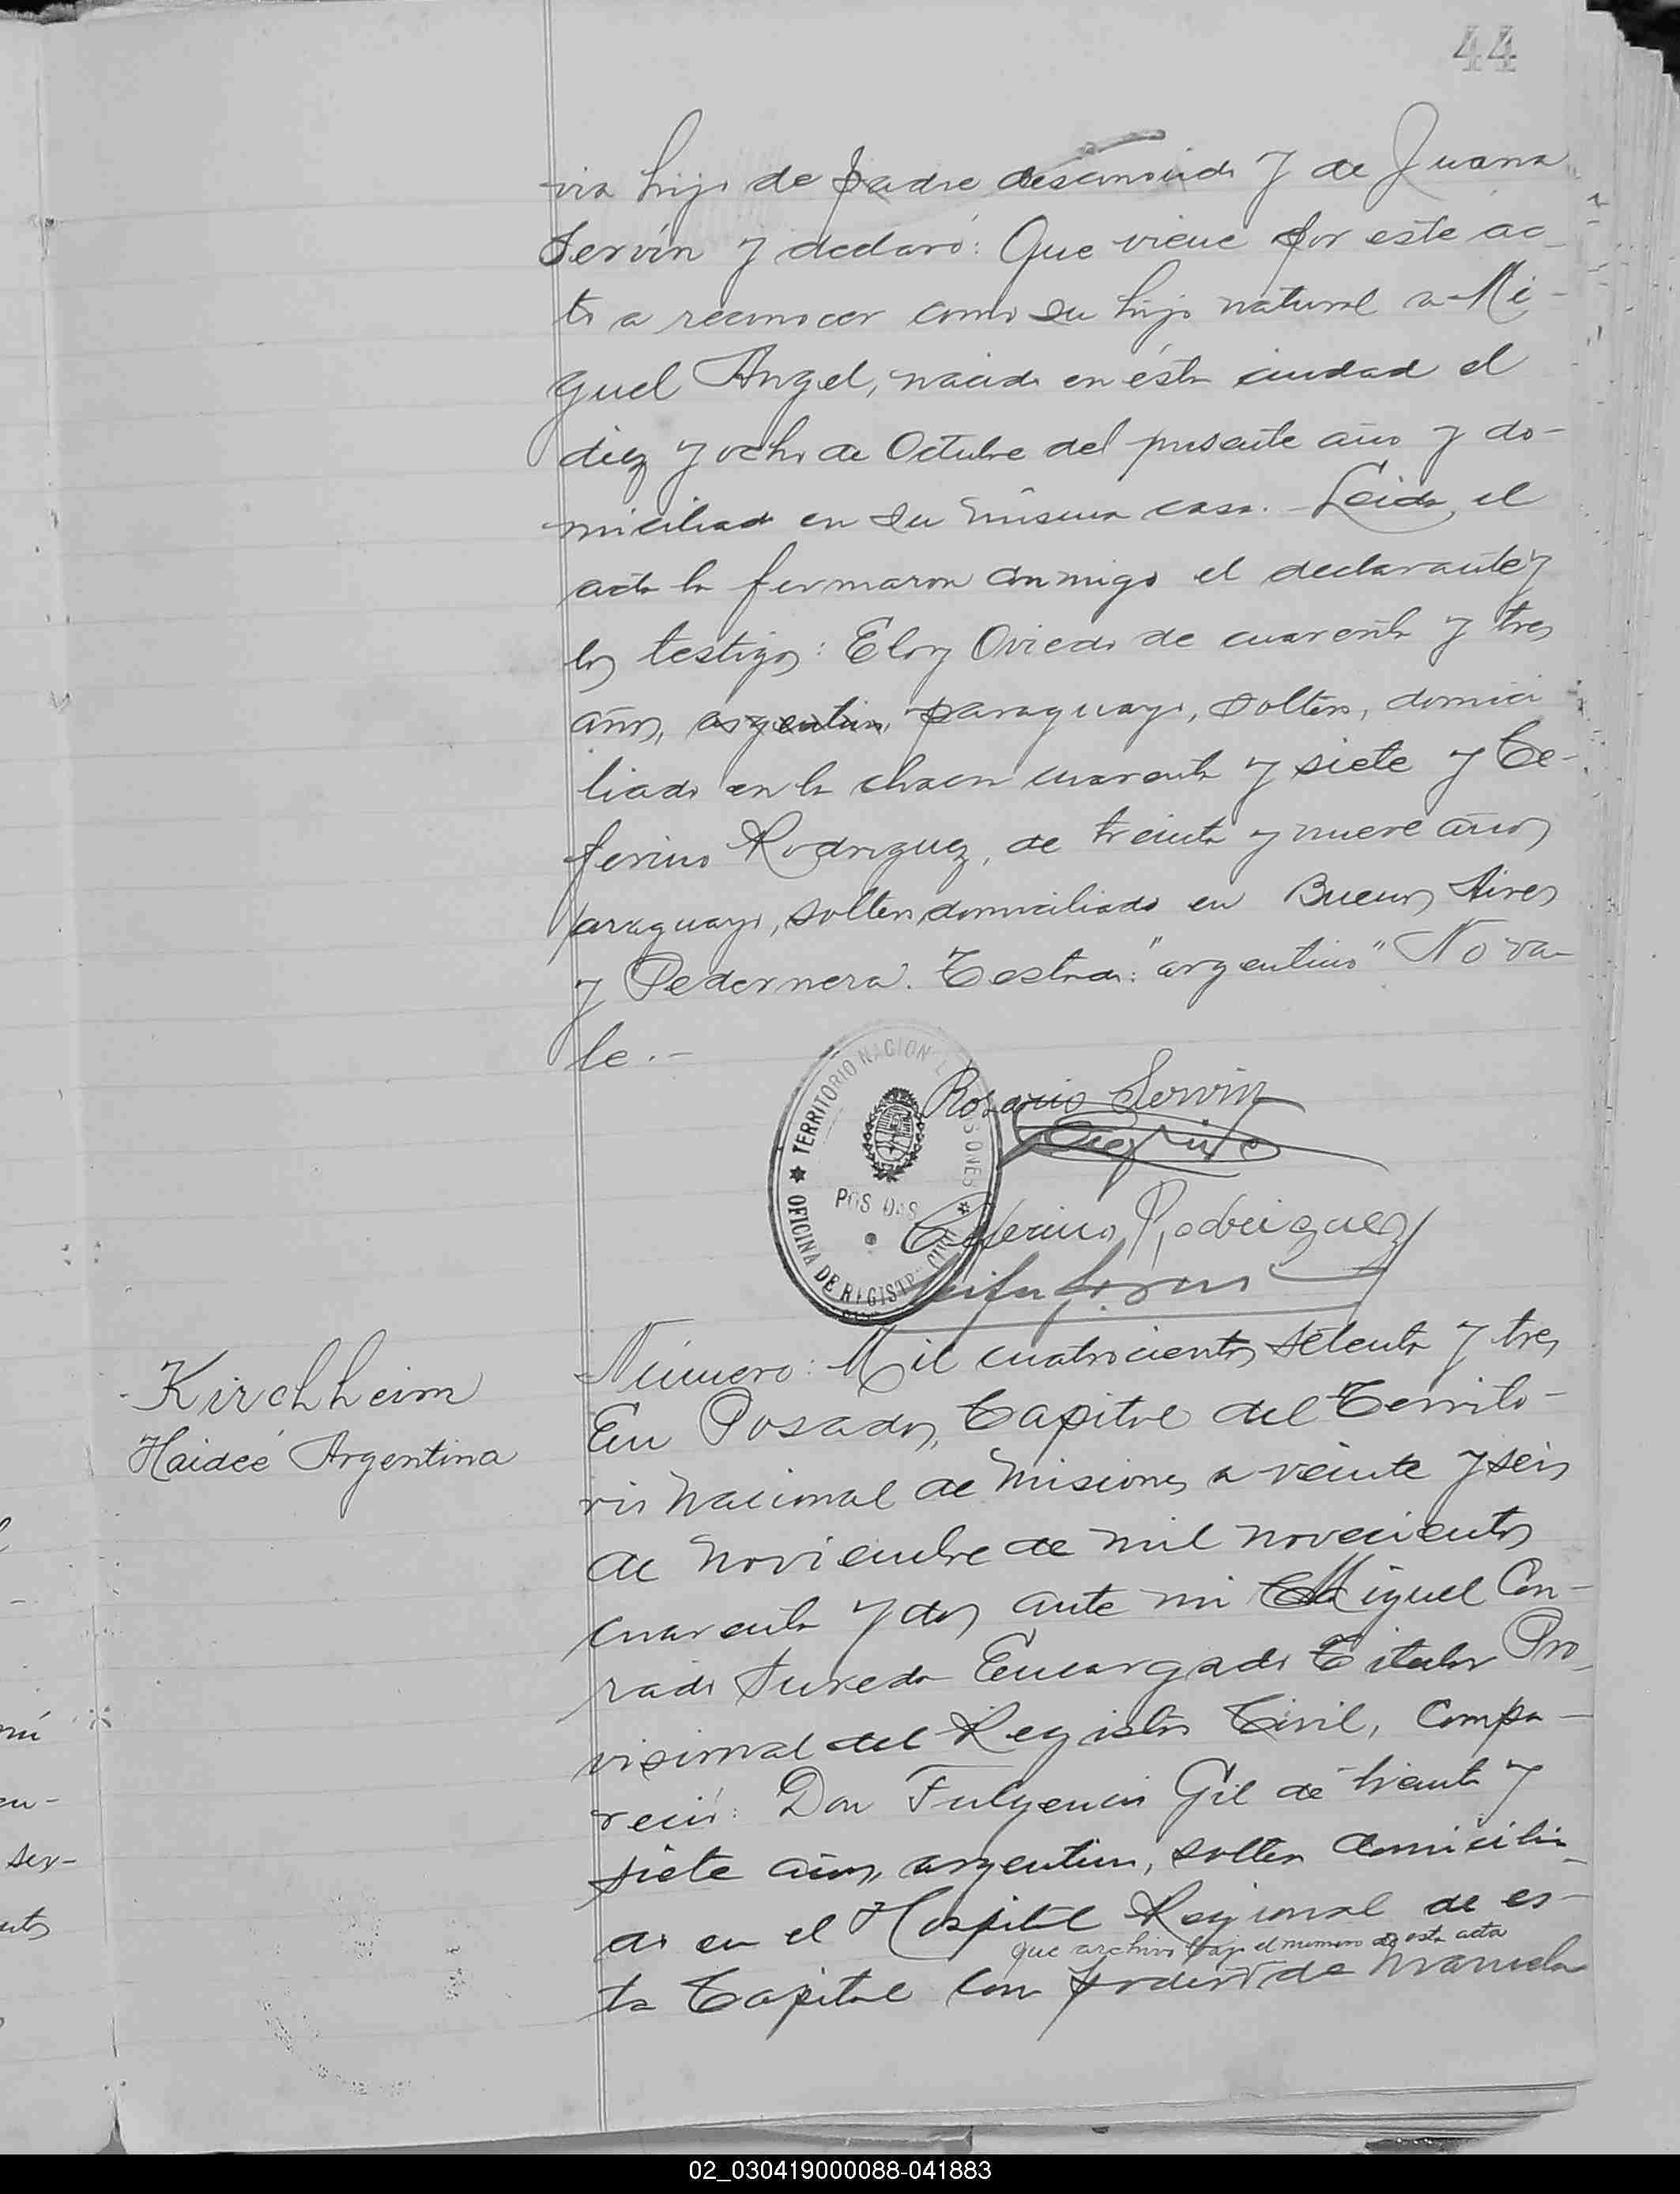 44
via hijo de padre desconocido y de Juana
Servín y declaró: Que viene por este ac-
to a reconocer como su hijo natural a Mi-
guel Angel, nacido en ésta ciudad el
diez y ocho de Octubre del presente año y do-
miciliado en su misma casa. - Leida el
acta la firmaron conmigo el declarante y
los testigos: Eloy Oviedo de cuarenta y tres
años, argentino, paraguayo, soltero, domici
liado en la chacra cuarenta y siete y Ce-
ferino Rodriguez, de treinta y nueve años
paraguayo, soltero domiciliado en Buenos Aires
y Pedernera. Testado: "argentino" No va-
le. -
TERRITORIO NACIONAL
OFICINA DE REGISTRO CIVIL
Rosario Servin
Ceferino Rodriguez
Kirchheim
Haideé Argentina
Número: Mil cuatrocientos setenta y tres
En Posadas, Capital del Territo-
rio Nacional de Misiones a veinte y seis
de Noviembre de mil novecientos
cuarenta y dos ante mi Miguel Con-
rado Sureda Encargado Titular Pro-
visional del Registro Civil, Compa-
reció: Don Fulgencio Gil de treinta y
siete años, argentino, soltero domicilia-
do en el Hospital Regional de es-
que archivo bajo el numero de esta acta
ta Capital con de Manuela
mú
ser-
02_030419000088-041883